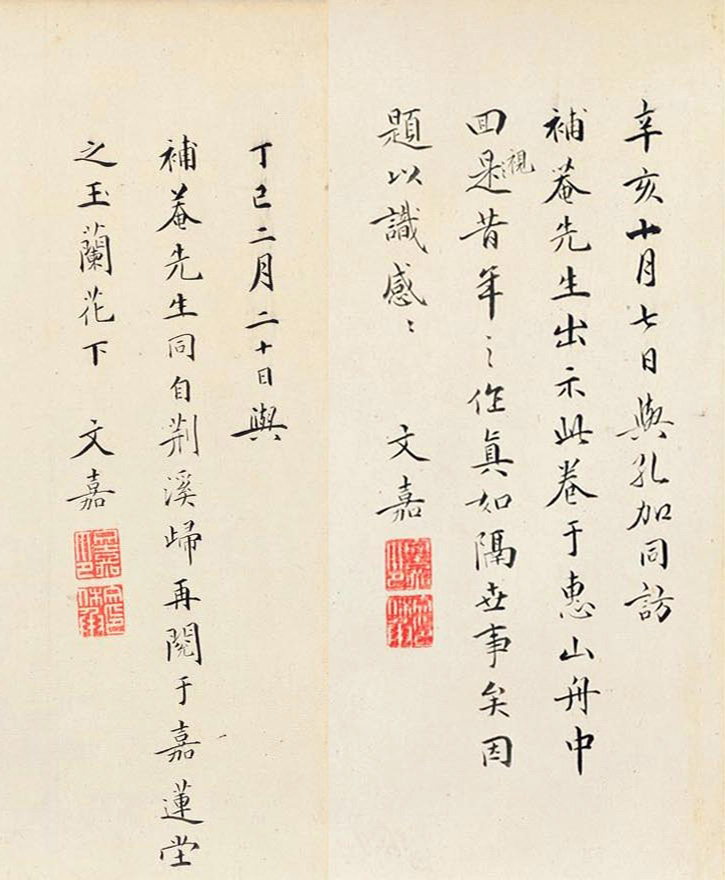 辛亥十月七日與孔加同訪
補菴先生出示此卷于惠山舟中
回視是昔年之作真如隔世事矣因
題以識感〻 文嘉
丁巳二月二十日與
補菴先生同自荆溪歸再閱于嘉蓮堂
之玉蘭花下 文嘉